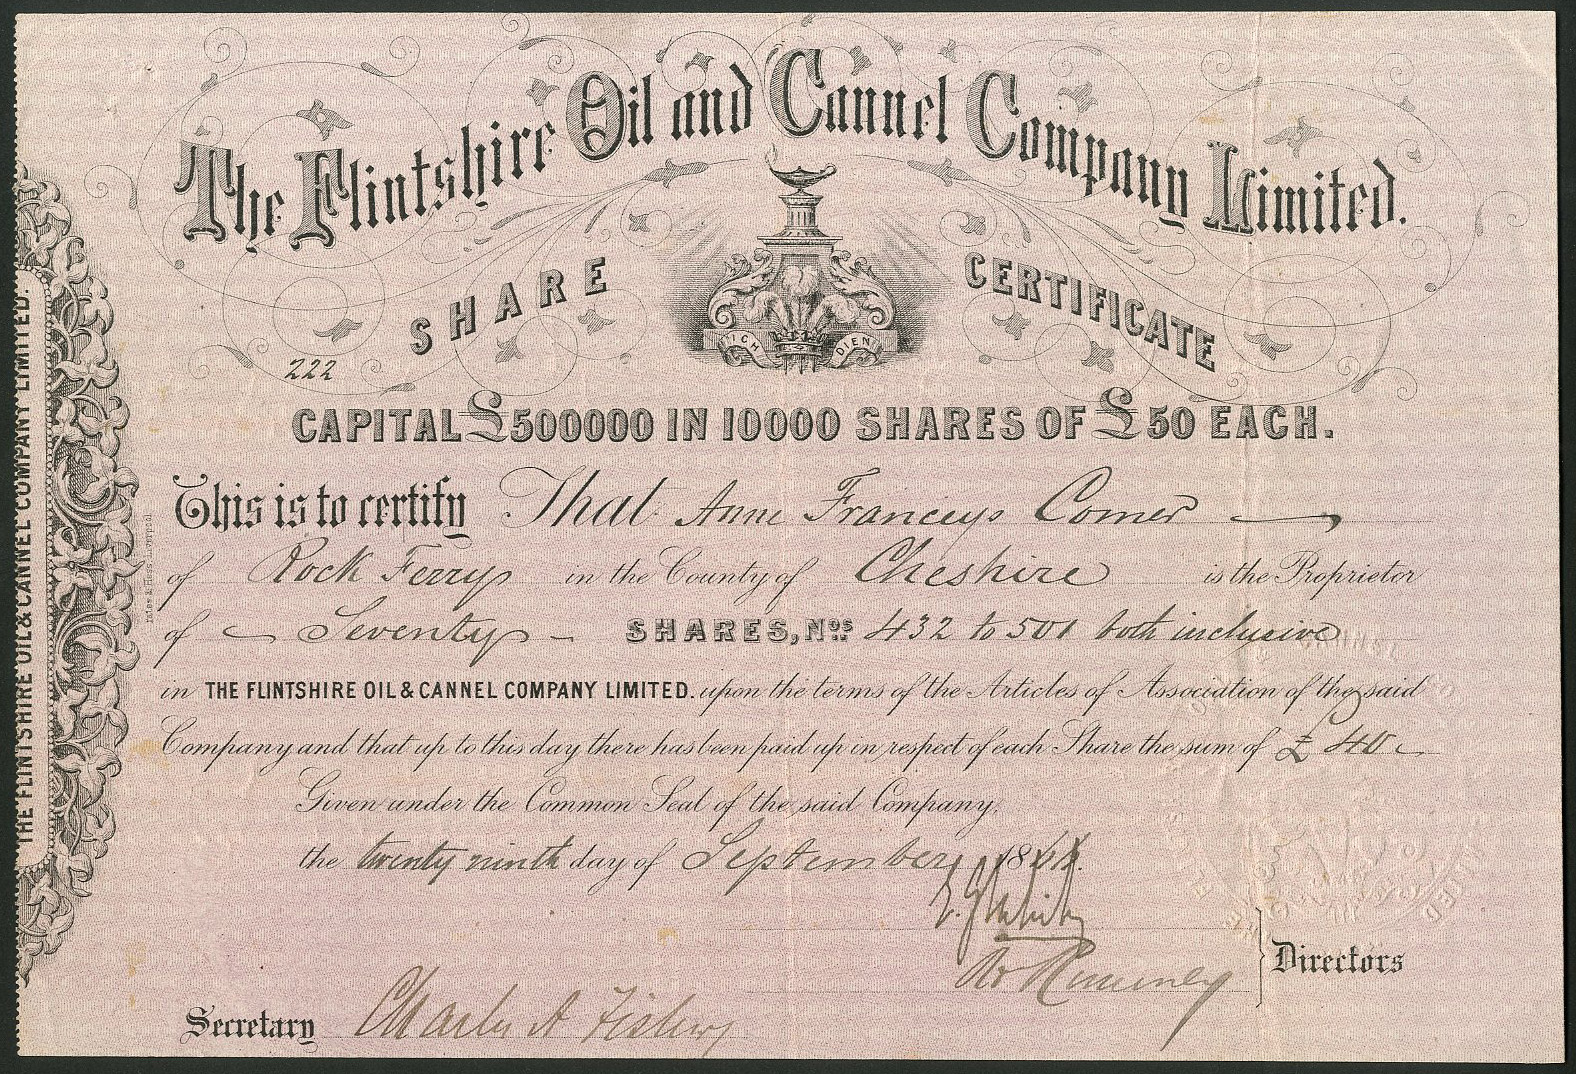 The Flintshire Oil and Cannel Company Limited.
SHARE CERTIFICATE
ICH DIEN
222
CAPITAL £500000 IN 10000 SHARES OF £50 EACH.
This is to certify That Anne Franceys Comer
of Rock Ferry in the County of Cheshire is the Proprietor
of Seventy SHARES, Nos. 432 to 501 both inclusive
in THE FLINTSHIRE OIL & CANNEL COMPANY LIMITED. upon the terms of the Articles of Association of the said
Company and that up to this day there has been paid up in respect of each Share the sum of £40
Given under the Common Seal of the said Company.
the twenty ninth day of September 18
Directors
Secretary Charles A
THE FLINTSHIRE OIL & CANNEL COMPANY LIMITED.